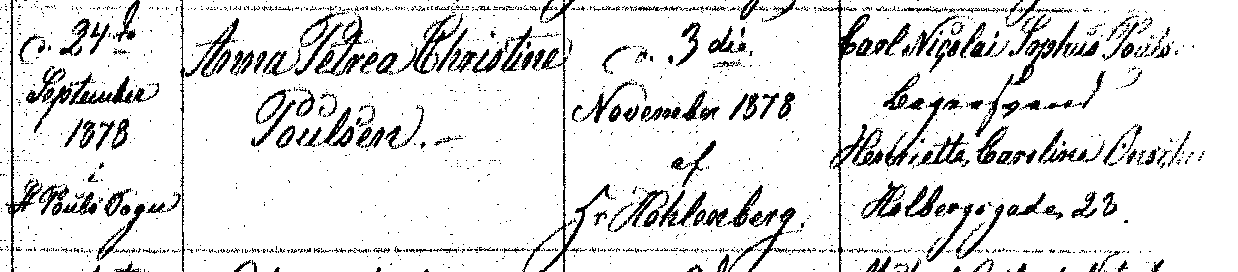 d. 24de
September
1878
i
St Pouls Sogn
Anna Petrea Christine
Poulsen. —
d. 3die
November 1878
af
Hr Kohlenberg.
Carl Nicolai Sophus Pouls
Henriette Caroline
Holbergsgade, 23.